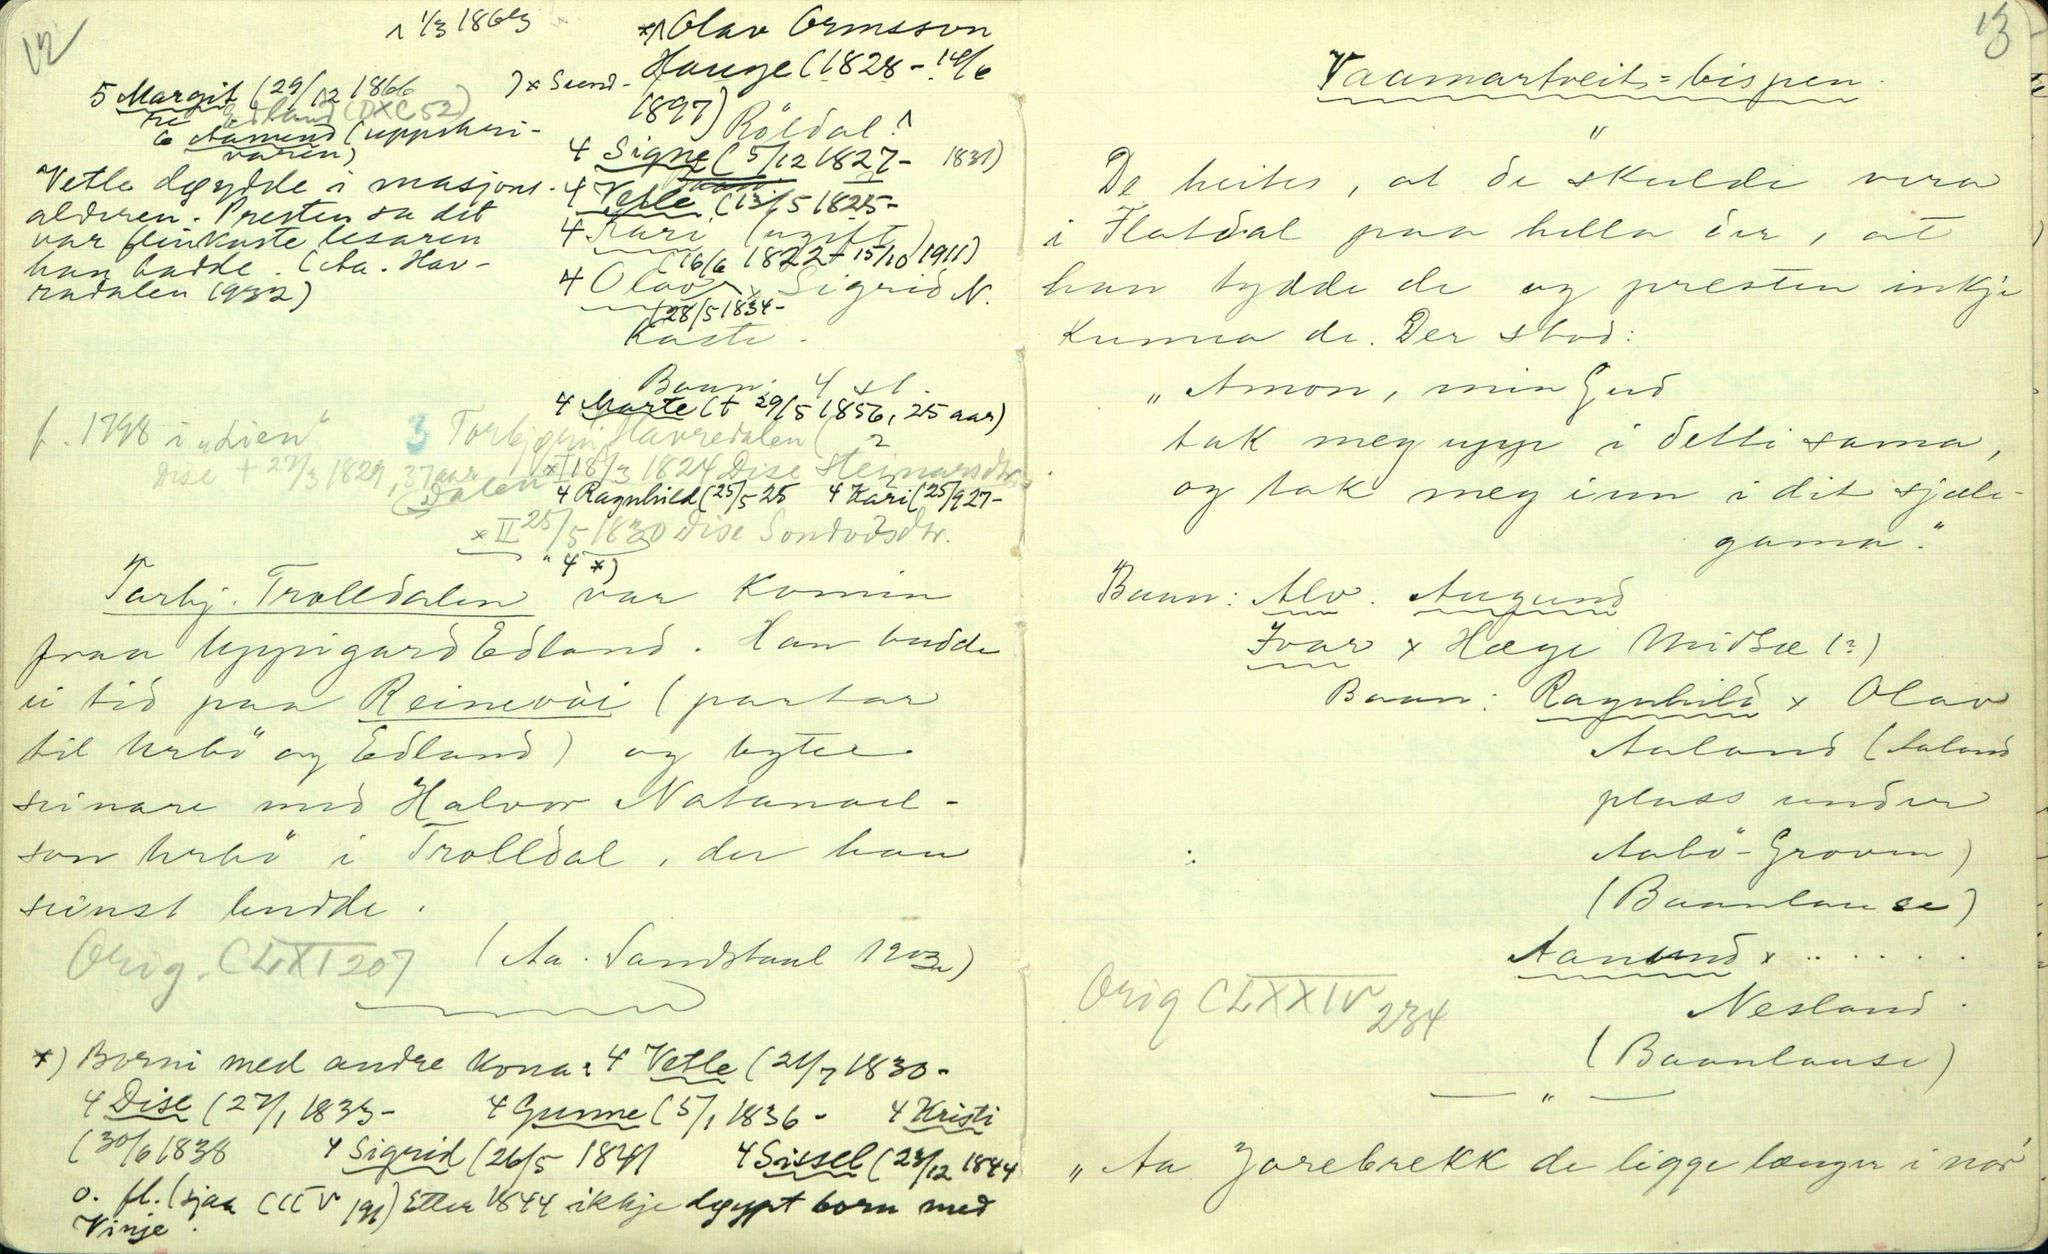 12
⅓ 1863
*) Olav Ormsson
Hauge (1828 – 14/6
1897) Röldal.
5 Margit (29/12 1866
Edland (DXC 52)
6 Aamund (uppskri-
varen)
Vetle døydde i masjons-
alderen. Presten sa det
var flinkaste lesaren
han hadde. (Aa. Hav-
radalen 1932)
4 Signe (5/12 1827 – 1831)
4 Vetle (13/5 1825 –
4 Kari (ugift)
(16/6 1822 – 15/10 1911)
4 Olav x Sigrid N.
(28/5 1834 –
Kaste.
Baan: 4 st.
4 Marte († 29/5 1856, 25 aar)
f. 1798 i „Lien"
3 Torbjørn Havredalen (
Dise † 27/3 1829, 37 aar
x I 18/3 1824 Dise Steinarsdtr.
Dalen
4 Ragnhild (25/5 25 4 Kari (25/9 27 –
x II 25/5 1830 Dise Sondvdsdtr.
" 4 *)
Tarbj. Trolldalen var komin
fraa Uppigard Edland. Han budde
ei tid paa Reinevöi (partar
til Urbö og Edland) og bytte
seinare med Halvor Natanael-
son Urbö i Trolldal, der han
seinst budde.
(Aa. Sandstaul 1903)
Orig. CLXI 207
*) Borni med andre kona: 4 Vetle (21/7 1830 –
4 Dise (27/1 1833 – 4 Gunne (5/1 1836 – 4 Kristi
(30/6 1838 4 Sigrid (26/5 1841 4 Sissel (23/12 1844
o. fl. (sjaa CCCV 191) Etter 1844 ikkje døypt born med
Vinje.
13
Vaamartveit=bispen.
"
De heites, at de skulde vera
i Flatdal paa hella der, at
han tydde de og presten inkje
kunna de. Der stod:
„Amon, min Gud
tak meg upp i detti sama,
og tak meg inn i dit sjæle-
gama."
Baan: Alv. Augund
Ivar x Hæge Midbæ (?)
Baan: Ragnhild x Olav
Aaland (Aaland
plass under
Aabö-Groven)
(Baanlause)
Aanund x .. . . . .
Nesland.
(Baanlause)
Orig CLXXIV 234
— " —
„Aa Jorebrekk de ligge længer i nór